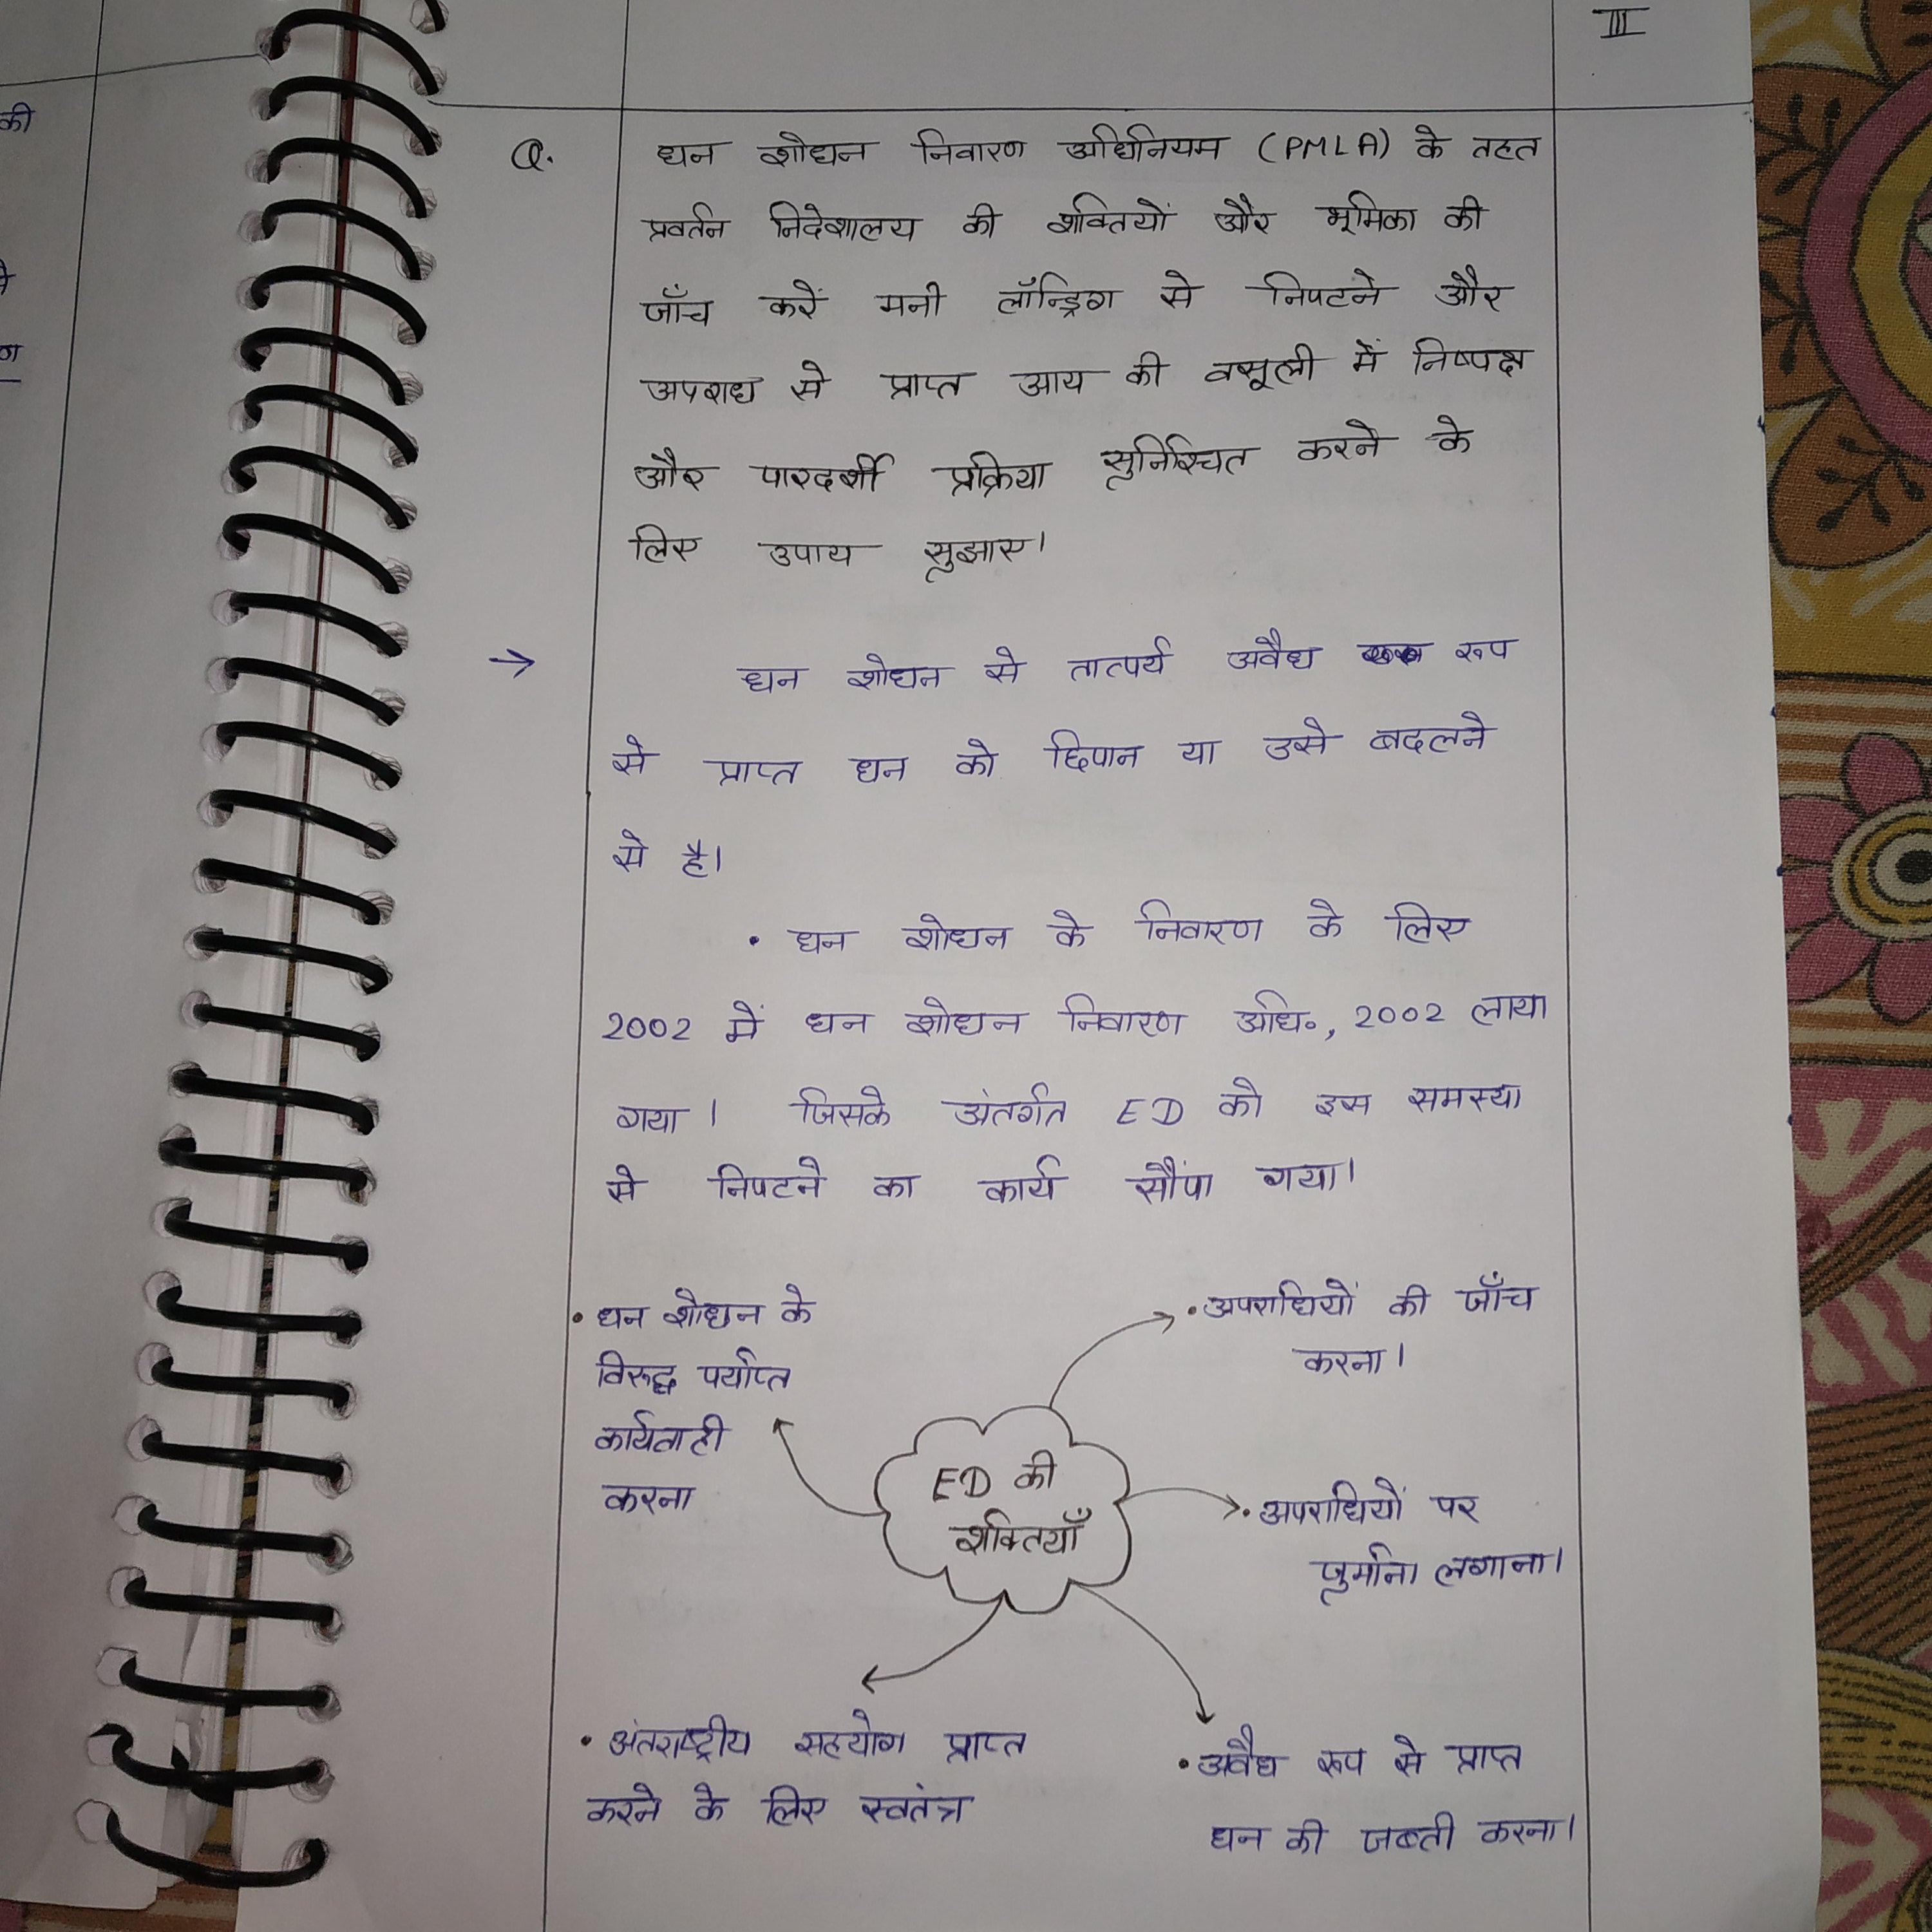 III
की
Q. धन शोधन निवारण अधिनियम (PMLA) के तहत
प्रवर्तन निदेशालय की शक्तियों और भूमिका की
जाँच करें मनी लॉन्ड्रिग से निपटने और
अपराध से प्राप्त आय की वसूली में निष्पक्ष
और पारदर्शी प्रक्रिया सुनिश्चित करने के
लिए उपाय सुझाए।
→ धन शोधन से तात्पर्य अवैध रूप
से प्राप्त धन को छिपान या उसे बदलने
से है।
• धन शोधन के निवारण के लिए
2002 में धन शोधन निवारण अधि॰, 2002 लाया
गया। जिसके अंतर्गत ED को इस समस्या
से निपटने का कार्य सौंपा गया।
• धन शोधन के
विरुद्ध पर्याप्त
कार्यवाही
करना
• अपराधियों की जाँच
करना।
ED की
शक्तियाँ
• अपराधियों पर
जुर्माना लगाना।
• अंतराष्ट्रीय सहयोग प्राप्त
करने के लिए स्वतंत्र
• अवैध रूप से प्राप्त
धन की जब्ती करना।